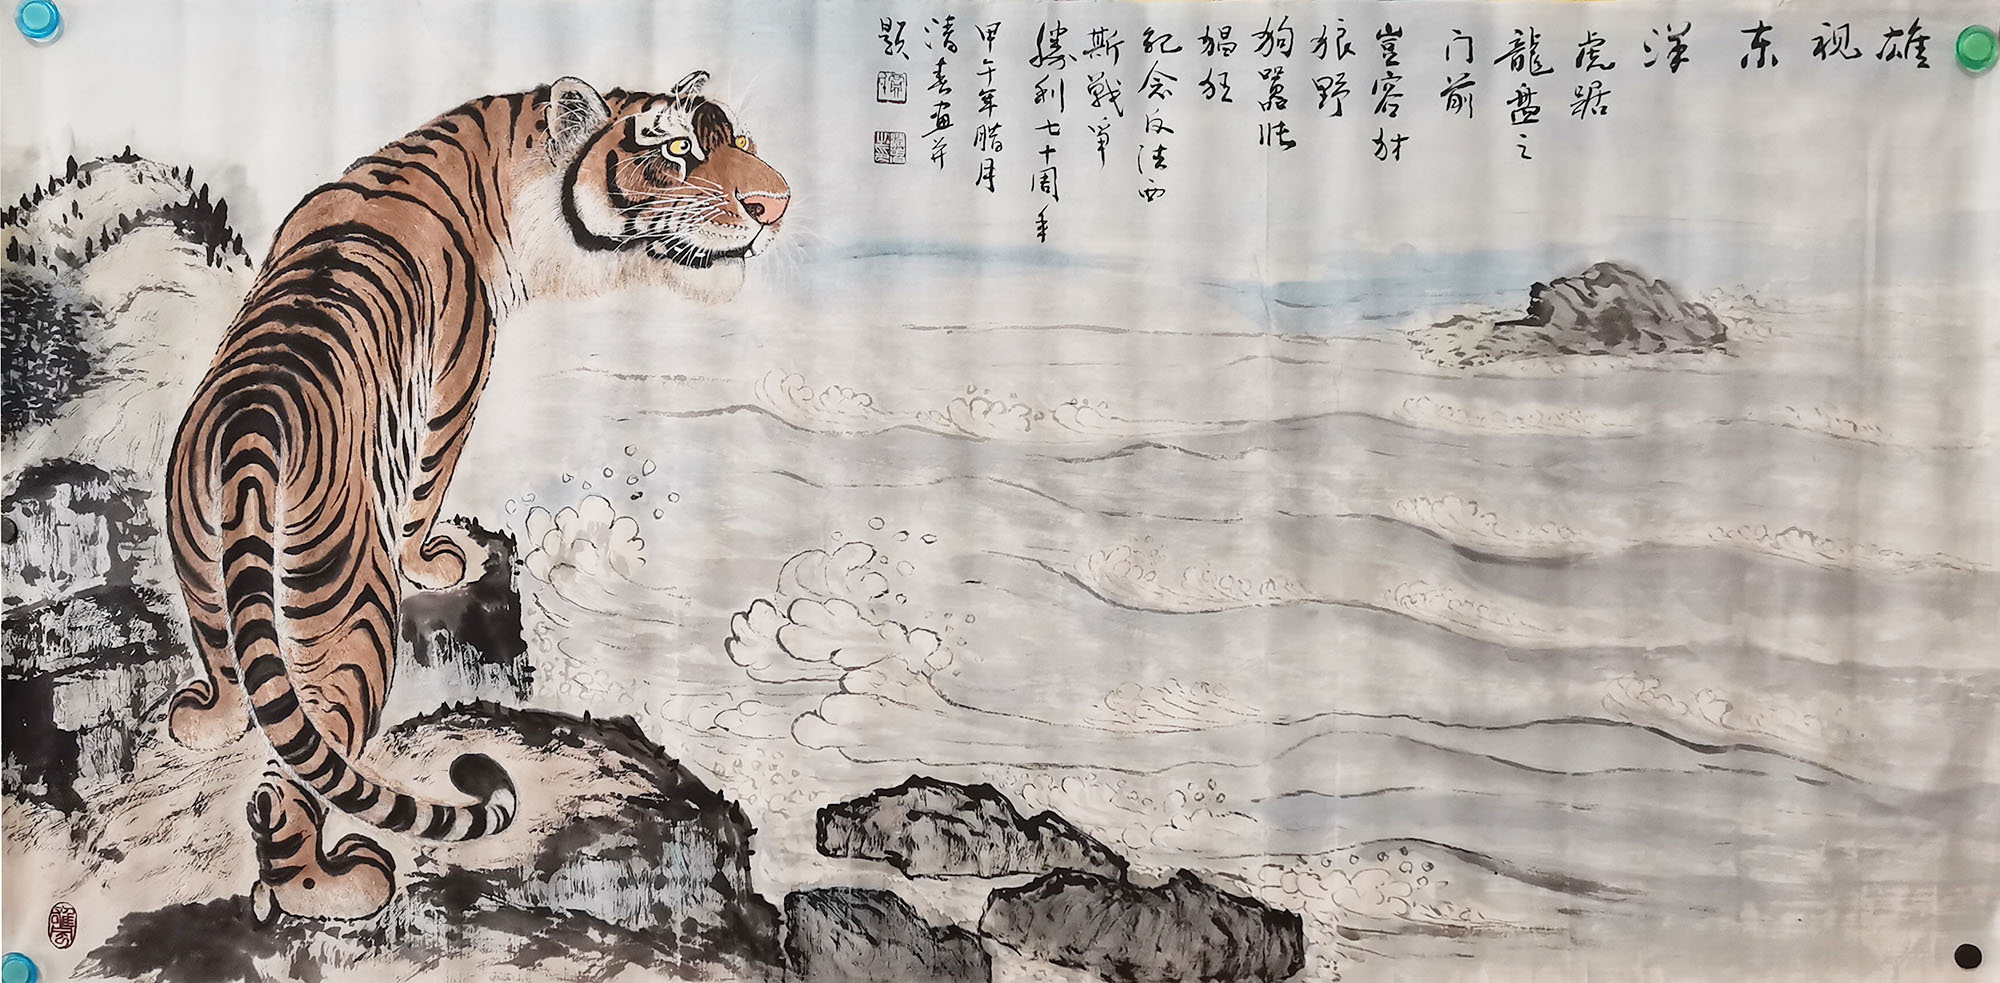 雄视东洋
虎踞
龍盘之
门前
豈容豺
狼野
狗嚣张
猖狂
纪念反法西
斯戰争
勝利七十周年
甲午年腊月
清春画并
题